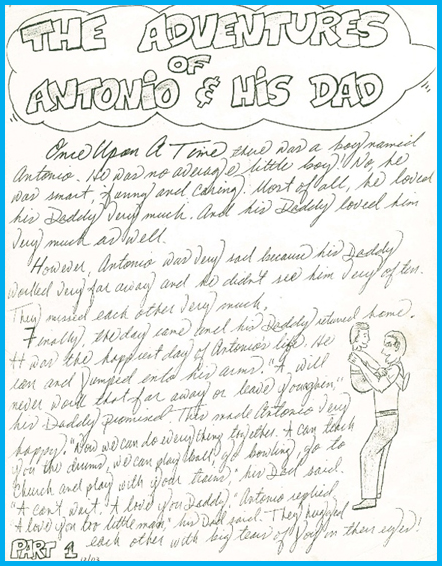 THE ADVENTURES
OF
ANTONIO & HIS DAD
Once Upon A Time, there was a boy named
Antonio. He was no average little boy. No, he
was smart, funny and caring. Most of all, he loved
his Daddy very much. And his Daddy loved him
very much as well.
However, Antonio was very sad because his Daddy
worked very far away and he didn't see him very often.
They missed each other very much.
Finally, the day came and his Daddy returned home.
It was the happiest day of Antonio's life. He
ran and jumped into his arms. "I will
never work that far away or leave you again,"
his Daddy promised. This made Antonio very
happy. "Now we can do everything together. I can teach
you the drums, we can play ball, go bowling, go to
Church and play with your trains," his Dad said.
"I can't wait. I love you Daddy," Antonio replied.
"I love you too little man," his Dad said. They hugged
each other with big tears of joy in their eyes!
PART 1
12/03